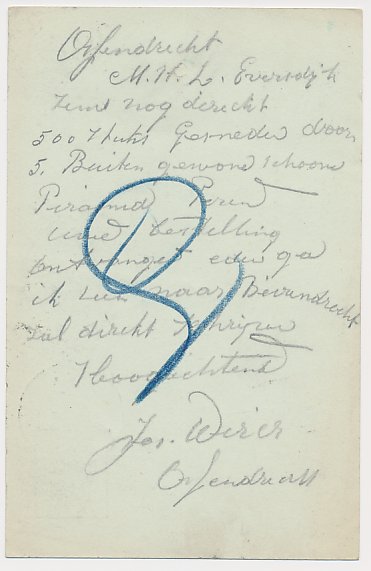 Ossendrecht
M.H.L. Eversdijk
Zend nog derecht
500 stuks Gesneden door
5. Buiten gewoon schoone
Piramid Peren
uwe bestelling
ontvangst
ik naar Bievendrecht
zal direkt schrijven
Hoogachtend
Jos.
Ossendrecht